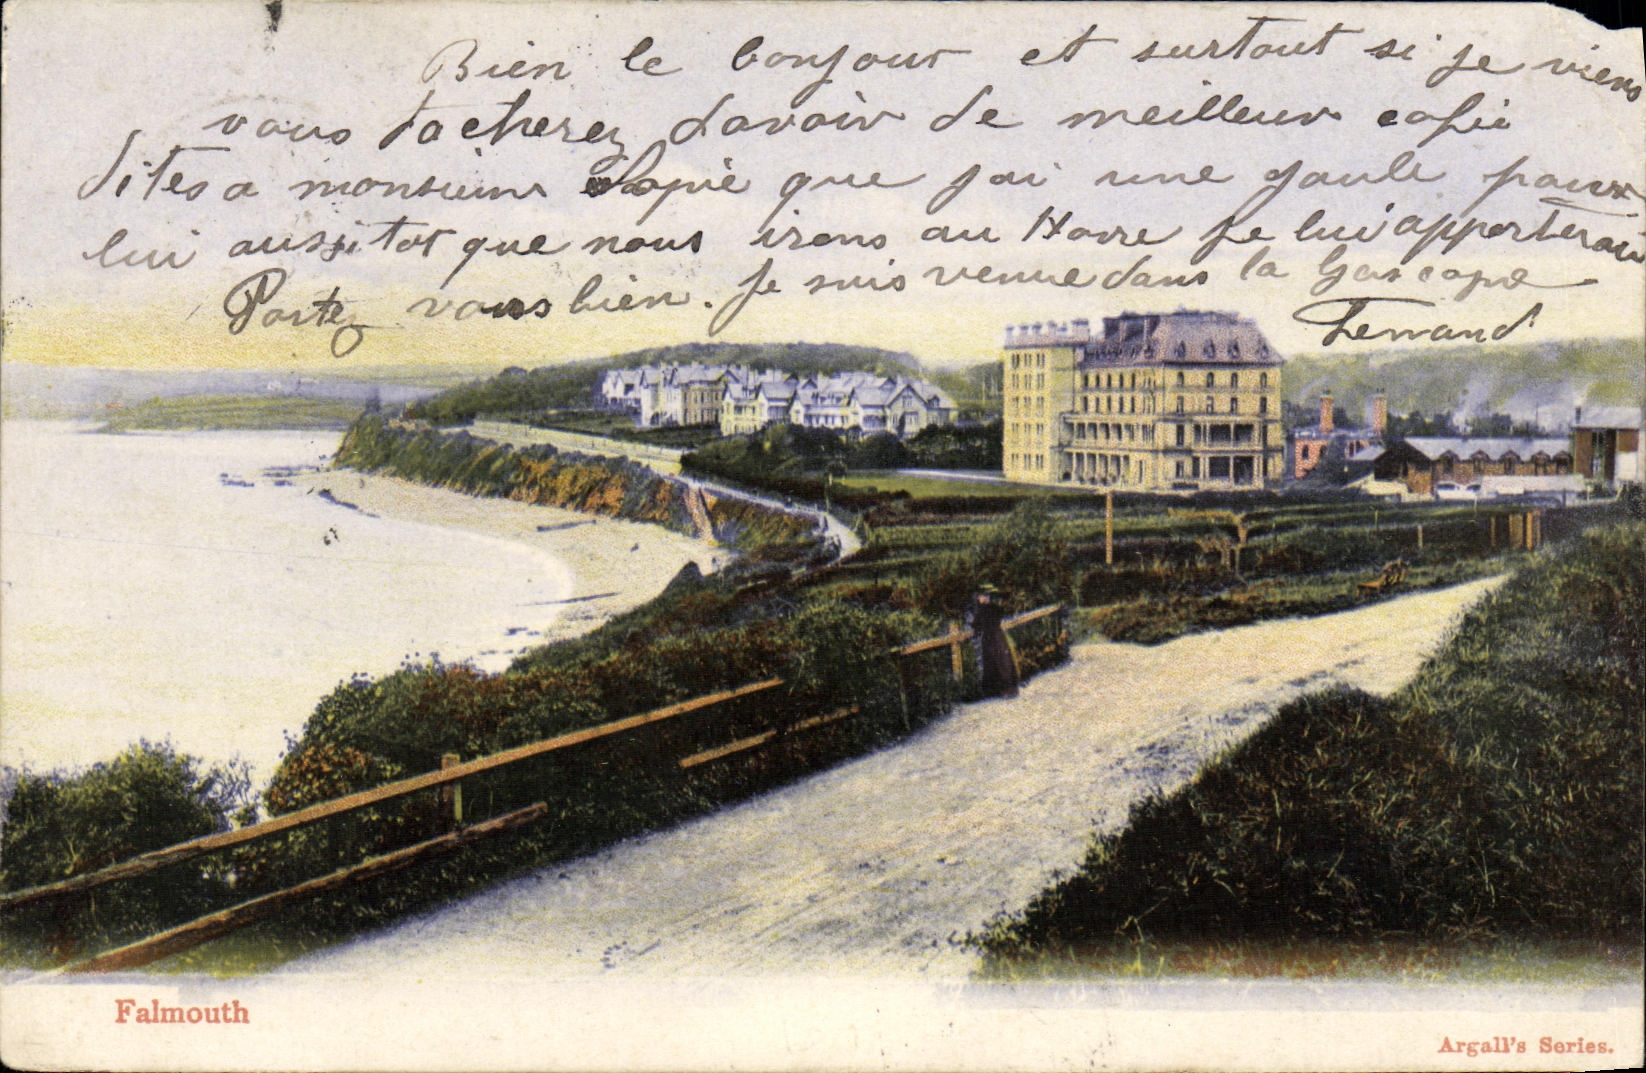 Bien le bonjour et surtout si je viens
vous tacherez davoir de meilleur cafii
dites a monsieur que jai une gaule pour
lui aussitot que nous irons au Havre je lui apporterai
Portez vous bien. Je suis venue dans la Gascogne
Fernand
Falmouth
Argall's Series.